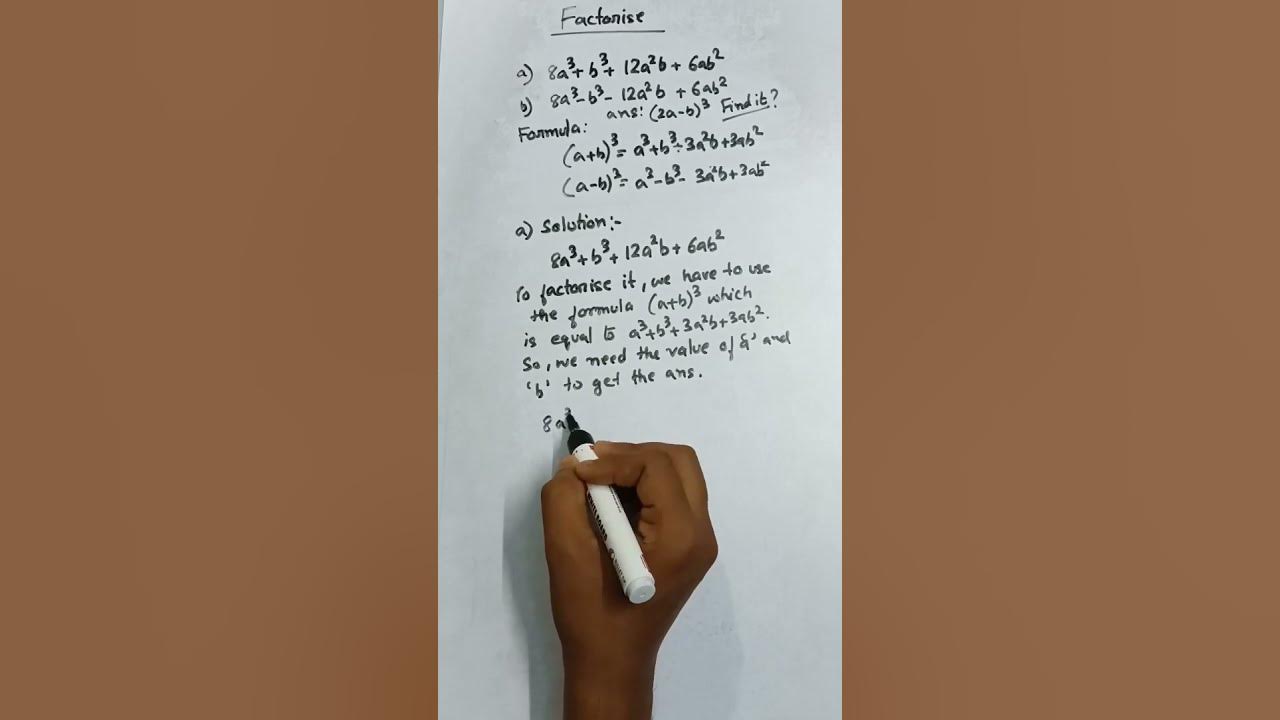 Factorise
a) 8a³+b³+ 12a²b + 6ab²
b) 8a³-b³- 12a²b + 6ab²
ans: (2a-b)³ Find it?
Formula:
(a+b)³= a³+b³+3a²b+3ab²
(a-b)³= a³-b³- 3a²b+3ab²
a) Solution:-
8a³+b³+12a²b+6ab²
To factorise it, we have to use
the formula (a+b)³ which
is equal to a³+b³+3a²b+3ab².
So, we need the value of 'a' and
'b' to get the ans.
8a³